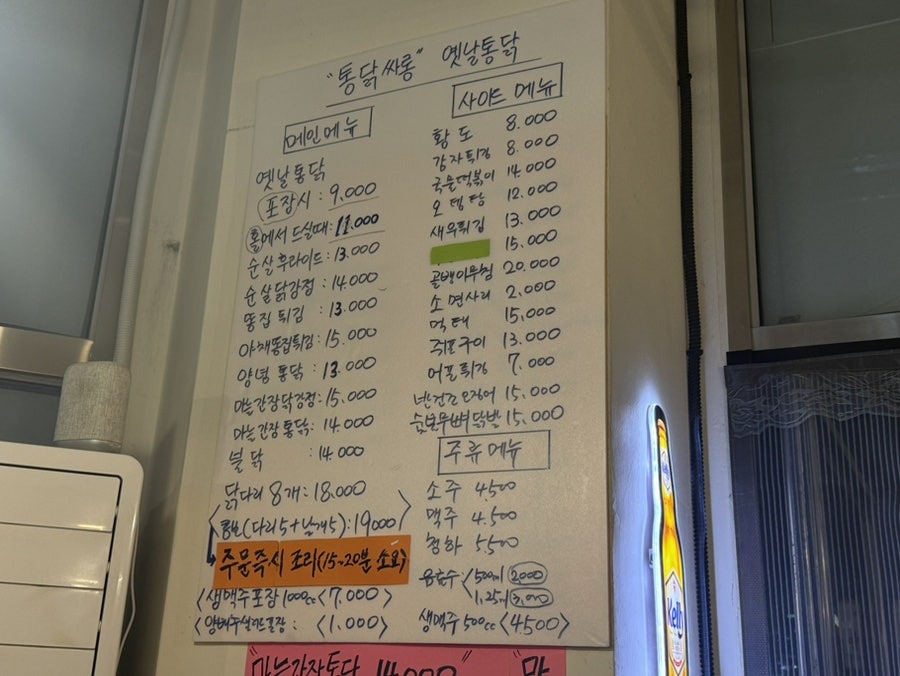 "통닭싸롱" 옛날통닭
메인메뉴
옛날통닭
포장시 : 9,000
홀에서 드실때 : 11.000
순살후라이드 : 13.000
순살닭강정 : 14.000
똥집 튀김 : 13.000
야채똥집튀김 : 15.000
양념 통닭 : 13.000
마늘간장닭강정 : 15.000
마늘간장통닭 : 14.000
불닭 : 14.000
닭다리 8개 : 18.000
(다리5+날개5) : 19000
주문즉시 조리(15~20분 소요)
<생맥주포장 1000cc <7,000>
<1.000>
사이드 메뉴
황도 8.000
감자튀김 8.000
국물떡볶이 14.000
오뎅탕 12.000
새우튀김 13.000
15.000
골뱅이무침 20.000
소면사리 2.000
먹태 15,000
쥐포구이 13.000
어포튀김 7.000
반건조오징어 15.000
숯불무뼈닭발 15,000
주류메뉴
소주 4500
맥주 4.500
청하 5,500
음료수 500ml 2000
1.25ml 3,000
생맥주 500cc <4500>
마늘간장통닭 14.000"
"맛
Kelly